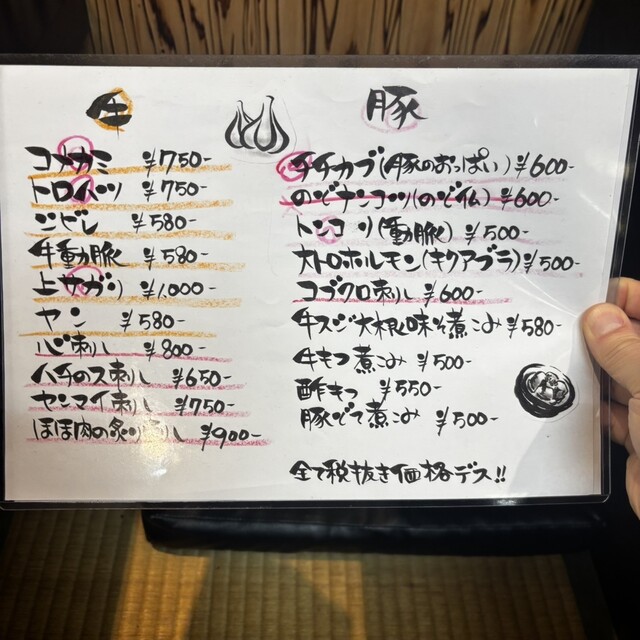 牛
コメカミ ¥750-
トロイツ ¥750-
シビレ ¥580-
牛動脈 ¥580-
上サガリ ¥1,000-
ヤン ¥580-
心刺し ¥800-
ハチのス刺し ¥650-
センマイ刺し ¥750-
ほほ肉の炙り刺し ¥900-
豚
チチカブ(豚のおっぱい) ¥600-
のどナンコツ(のど仏) ¥600-
トンコリ(動脈) ¥500-
大トロホルモン(キクアブラ) ¥500-
コブクロ刺し ¥600-
牛スジ大根味そ煮こみ ¥580-
牛もつ煮こみ ¥500-
酢もつ ¥550-
豚びて煮こみ ¥500-
全て税抜き価格デス!!